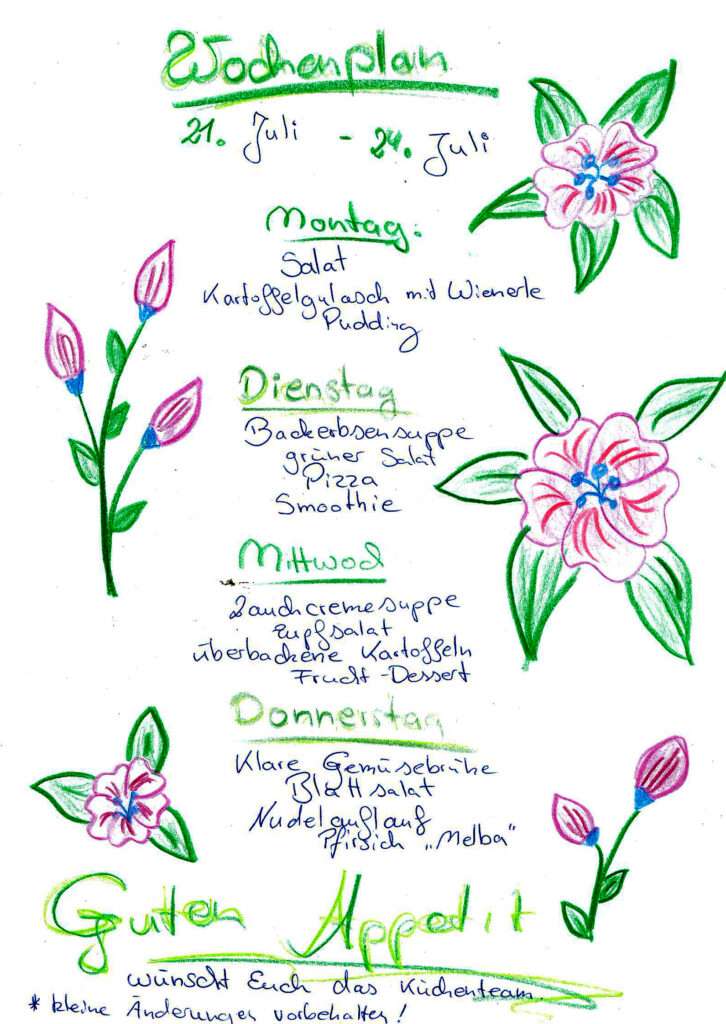 Wochenplan
21. Juli - 24. Juli
Montag:
Salat
Kartoffelgulasch mit Wienerle
Pudding
Dienstag
Backerbsensuppe
grüner Salat
Pizza
Smoothie
Mittwoch
Lauchcremesuppe
Zupfsalat
überbackene Kartoffeln
Frucht-Dessert
Donnerstag
Klare Gemüsebrühe
Blattsalat
Nudelauflauf
Pfirsich „Melba"
Guten Appetit
wünscht Euch das Küchenteam.
* kleine Änderungen vorbehalten!